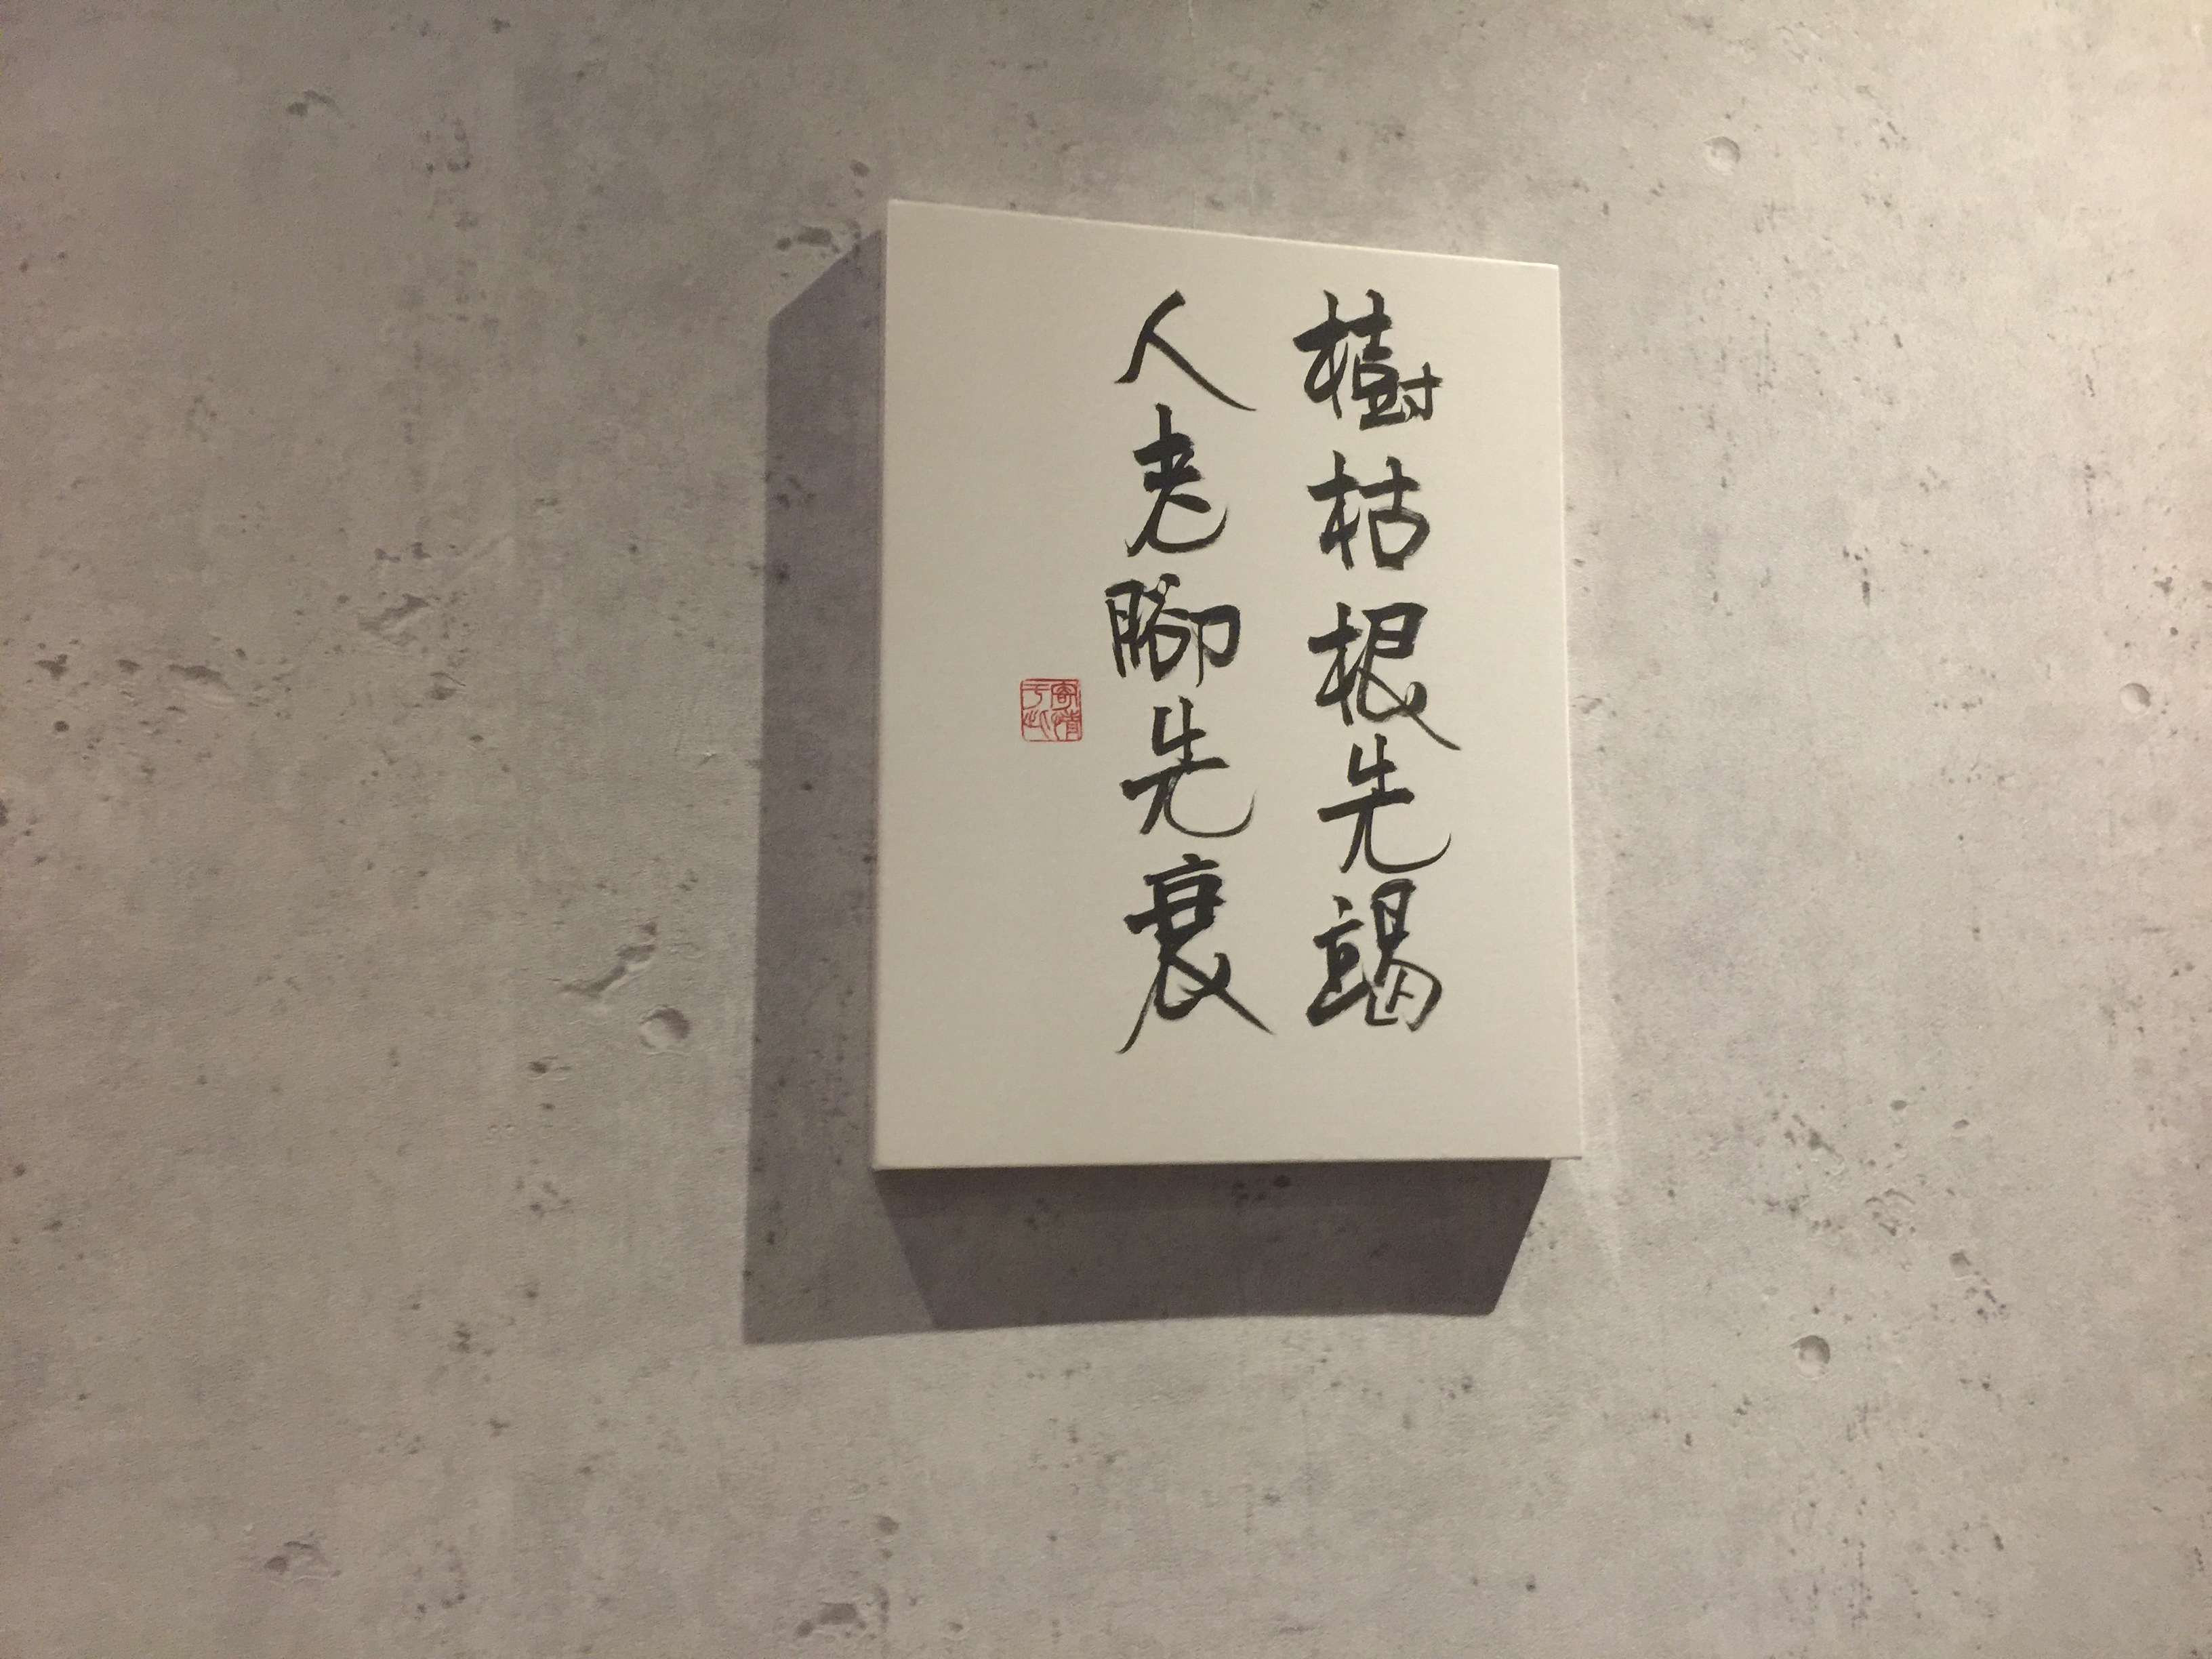 樹枯根先竭
人老腳先衰
寄情
于此